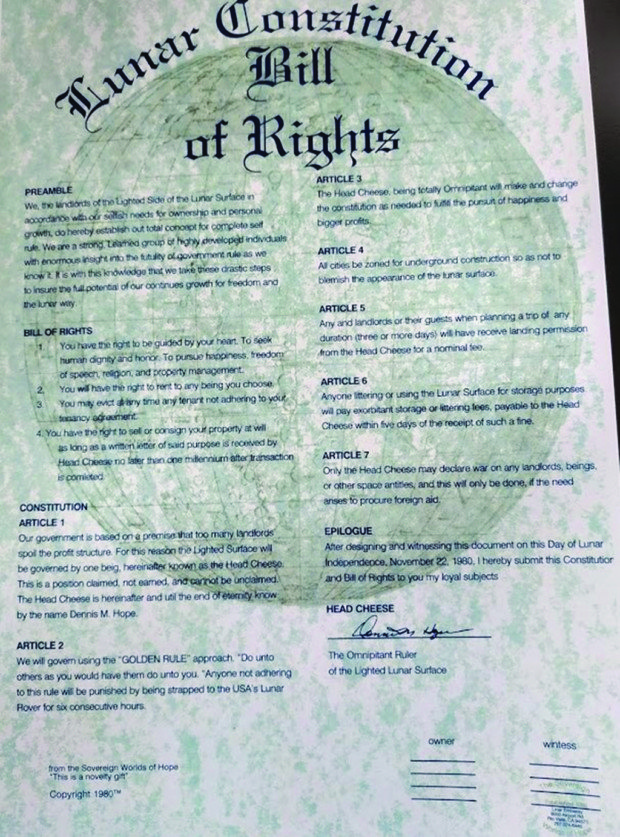 Lunar Constitution
Bill
of Rights
PREAMBLE
We, the landlords of the Lighted Side of the Lunar Surface in
accordance with our selfish needs for ownership and personal
growth, do hereby establish out total concept for complete self
rule. We are a strong, Learned group of highly developed individuals
with enormous insight into the futility of government rule as we
know it. It is with this knowledge that we take these drastic steps
to insure the full potential of our continues growth for freedom and
the lunar way.
BILL OF RIGHTS
1. You have the right to be guided by your heart. To seek
human dignity and honor. To pursue happiness, freedom
of speech, religion, and property management.
2. You will have the right to rent to any being you choose.
3. You may evict at any time any tenant not adhering to your
tenancy agreement.
4. You have the right to sell or consign your property at will
as long as a written letter of said purpose is received by
Head Cheese no later than one millennium after transaction
is comleted.
CONSTITUTION
ARTICLE 1
Our government is based on a premise that too many landlords
spoil the profit structure. For this reason the Lighted Surface will
be governed by one beig, hereinafter known as the Head Cheese.
This is a position claimed, not earned, and cannot be unclaimed.
The Head Cheese is hereinafter and util the end of eternity know
by the name Dennis M. Hope.
ARTICLE 2
We will govern using the "GOLDEN RULE" approach. "Do unto
others as you would have them do unto you. "Anyone not adhering
to this rule will be punished by being strapped to the USA's Lunar
Rover for six consecutive hours.
from the Sovereign Worlds of Hope
"This is a novelty gift"
Copyright 1980™
ARTICLE 3
The Head Cheese, being totally Omnipitant will make and change
the constitution as needed to fulfill the pursuit of happiness and
bigger profits.
ARTICLE 4
All cities be zoned for underground construction so as not to
blemish the appearance of the lunar surface.
ARTICLE 5
Any and landlords or their guests when planning a trip of any
duration (three or more days) will have receive landing permission
from the Head Cheese for a nominal fee.
ARTICLE 6
Anyone littering or using the Lunar Surface for storage purposes
will pay exorbitant storage or littering fees, payable to the Head
Cheese within five days of the receipt of such a fine.
ARTICLE 7
Only the Head Cheese may declare war on any landlords, beings,
or other space antities, and this will only be done, if the need
arises to procure foreign aid.
EPILOGUE
After designing and witnessing this document on this Day of Lunar
Independence, November 22, 1980, I hereby submit this Constitution
and Bill of Rights to you my loyal subjects
HEAD CHEESE
The Omnipitant Ruler
of the Lighted Lunar Surface
owner
wintess